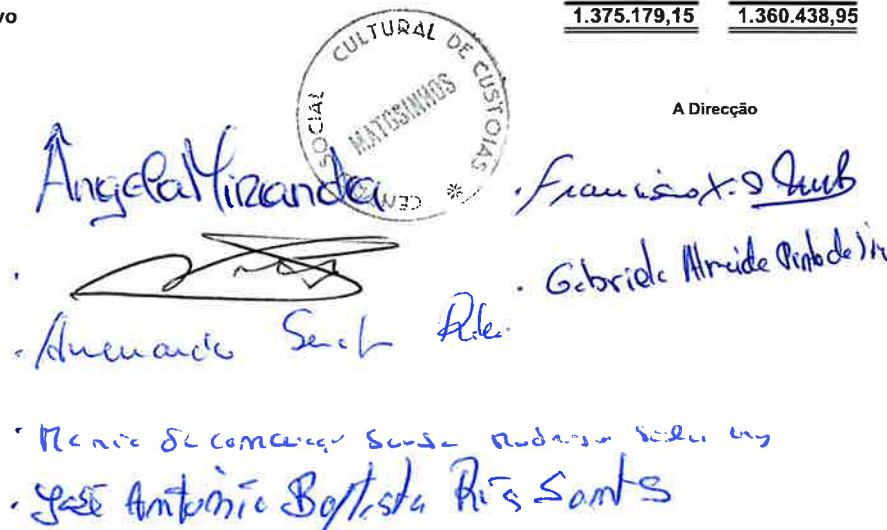 vo 1.375.179,15 1.360.438,95
CENTRO SOCIAL CULTURAL DE CUSTOIAS *
MATOSINHOS
A Direcção
Ângela Miranda
Francisco X. S
Gabriela Almeida Pinto de
Armando
Maria da Conceição Sousa
José António Baptista Reis Santos